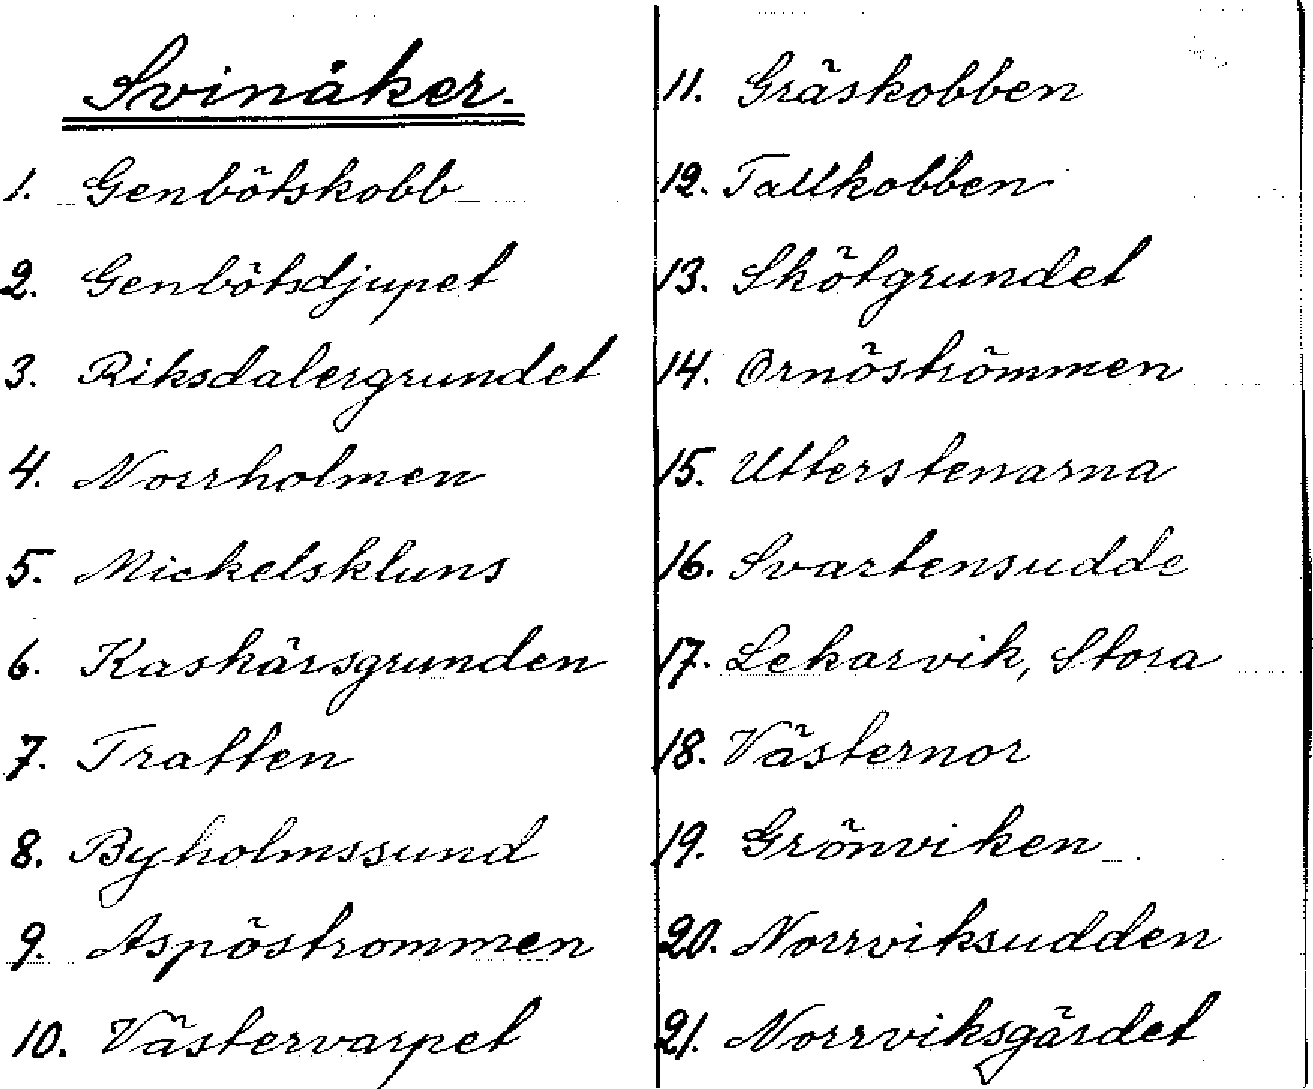 Svinåker.
1. Genbötskobb
2. Genbötsdjupet
3. Riksdalergrundet
4. Norrholmen
5. Mickelskluns
6. Kaskärsgrunden
7. Tratten
8. Byholmssund
9. Aspöstrommen
10. Västervarpet
11. Gräskobben
12. Tallkobben
13. Skötgrundet
14. Ornöströmmen
15. Utterstenarna
16. Svartensudde
17. Lekarvik, Stora
18. Västernor
19. Grönviken
20. Norrviksudden
21. Norrviksgärdet